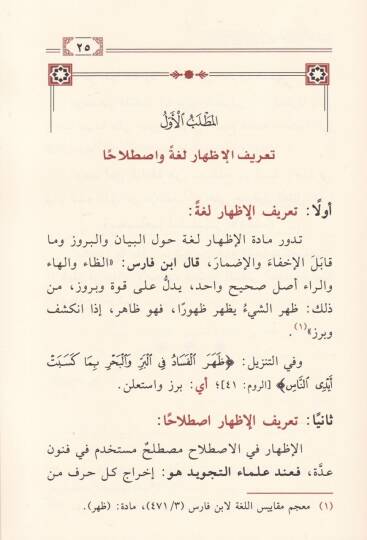 ٢٥
المَطْلَبُ الْأَوَّلُ
تعريف الإظهار لغةً واصطلاحًا
أولًا: تعريف الإظهار لغةً:
تدور مادة الإظهار لغة حول البيان والبروز وما
قابَلَ الإخفاءَ والإضمارَ، قال ابن فارس: «الظاء والهاء
والراء أصل صحيح واحد، يدلُّ على قوة وبروز، من
ذلك: ظهر الشيءُ يظهر ظهورًا، فهو ظاهر، إذا انكشف
وبرز»(١).
وفي التنزيل: ﴿ظَهَرَ ٱلْفَسَادُ فِي ٱلْبَرِّ وَٱلْبَحْرِ بِمَا كَسَبَتْ
أَيْدِي ٱلنَّاسِ﴾ [الروم: ٤١]؛ أي: برز واستعلن.
ثانيًا: تعريف الإظهار اصطلاحًا:
الإظهار في الاصطلاح مصطلحٌ مستخدم في فنون
عدَّة، فعند علماء التجويد هو: إخراج كل حرف من
(١) معجم مقاييس اللغة لابن فارس (٣/ ٤٧١)، مادة: (ظهر).